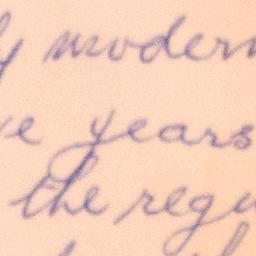 y modern
ve years
the regu